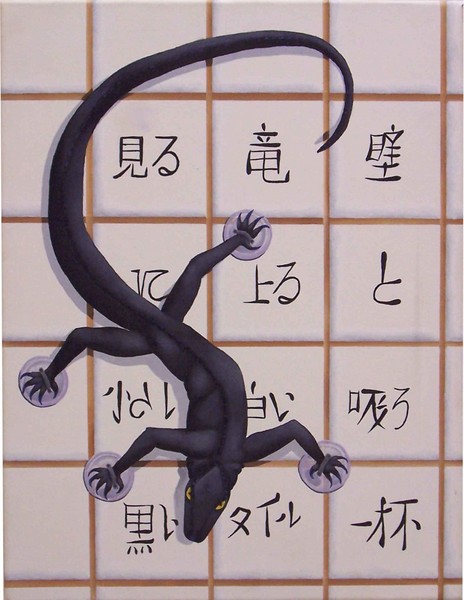 見る 竜 壁
に 上る と
小さい 白い 吸う
黒い タイル 一杯